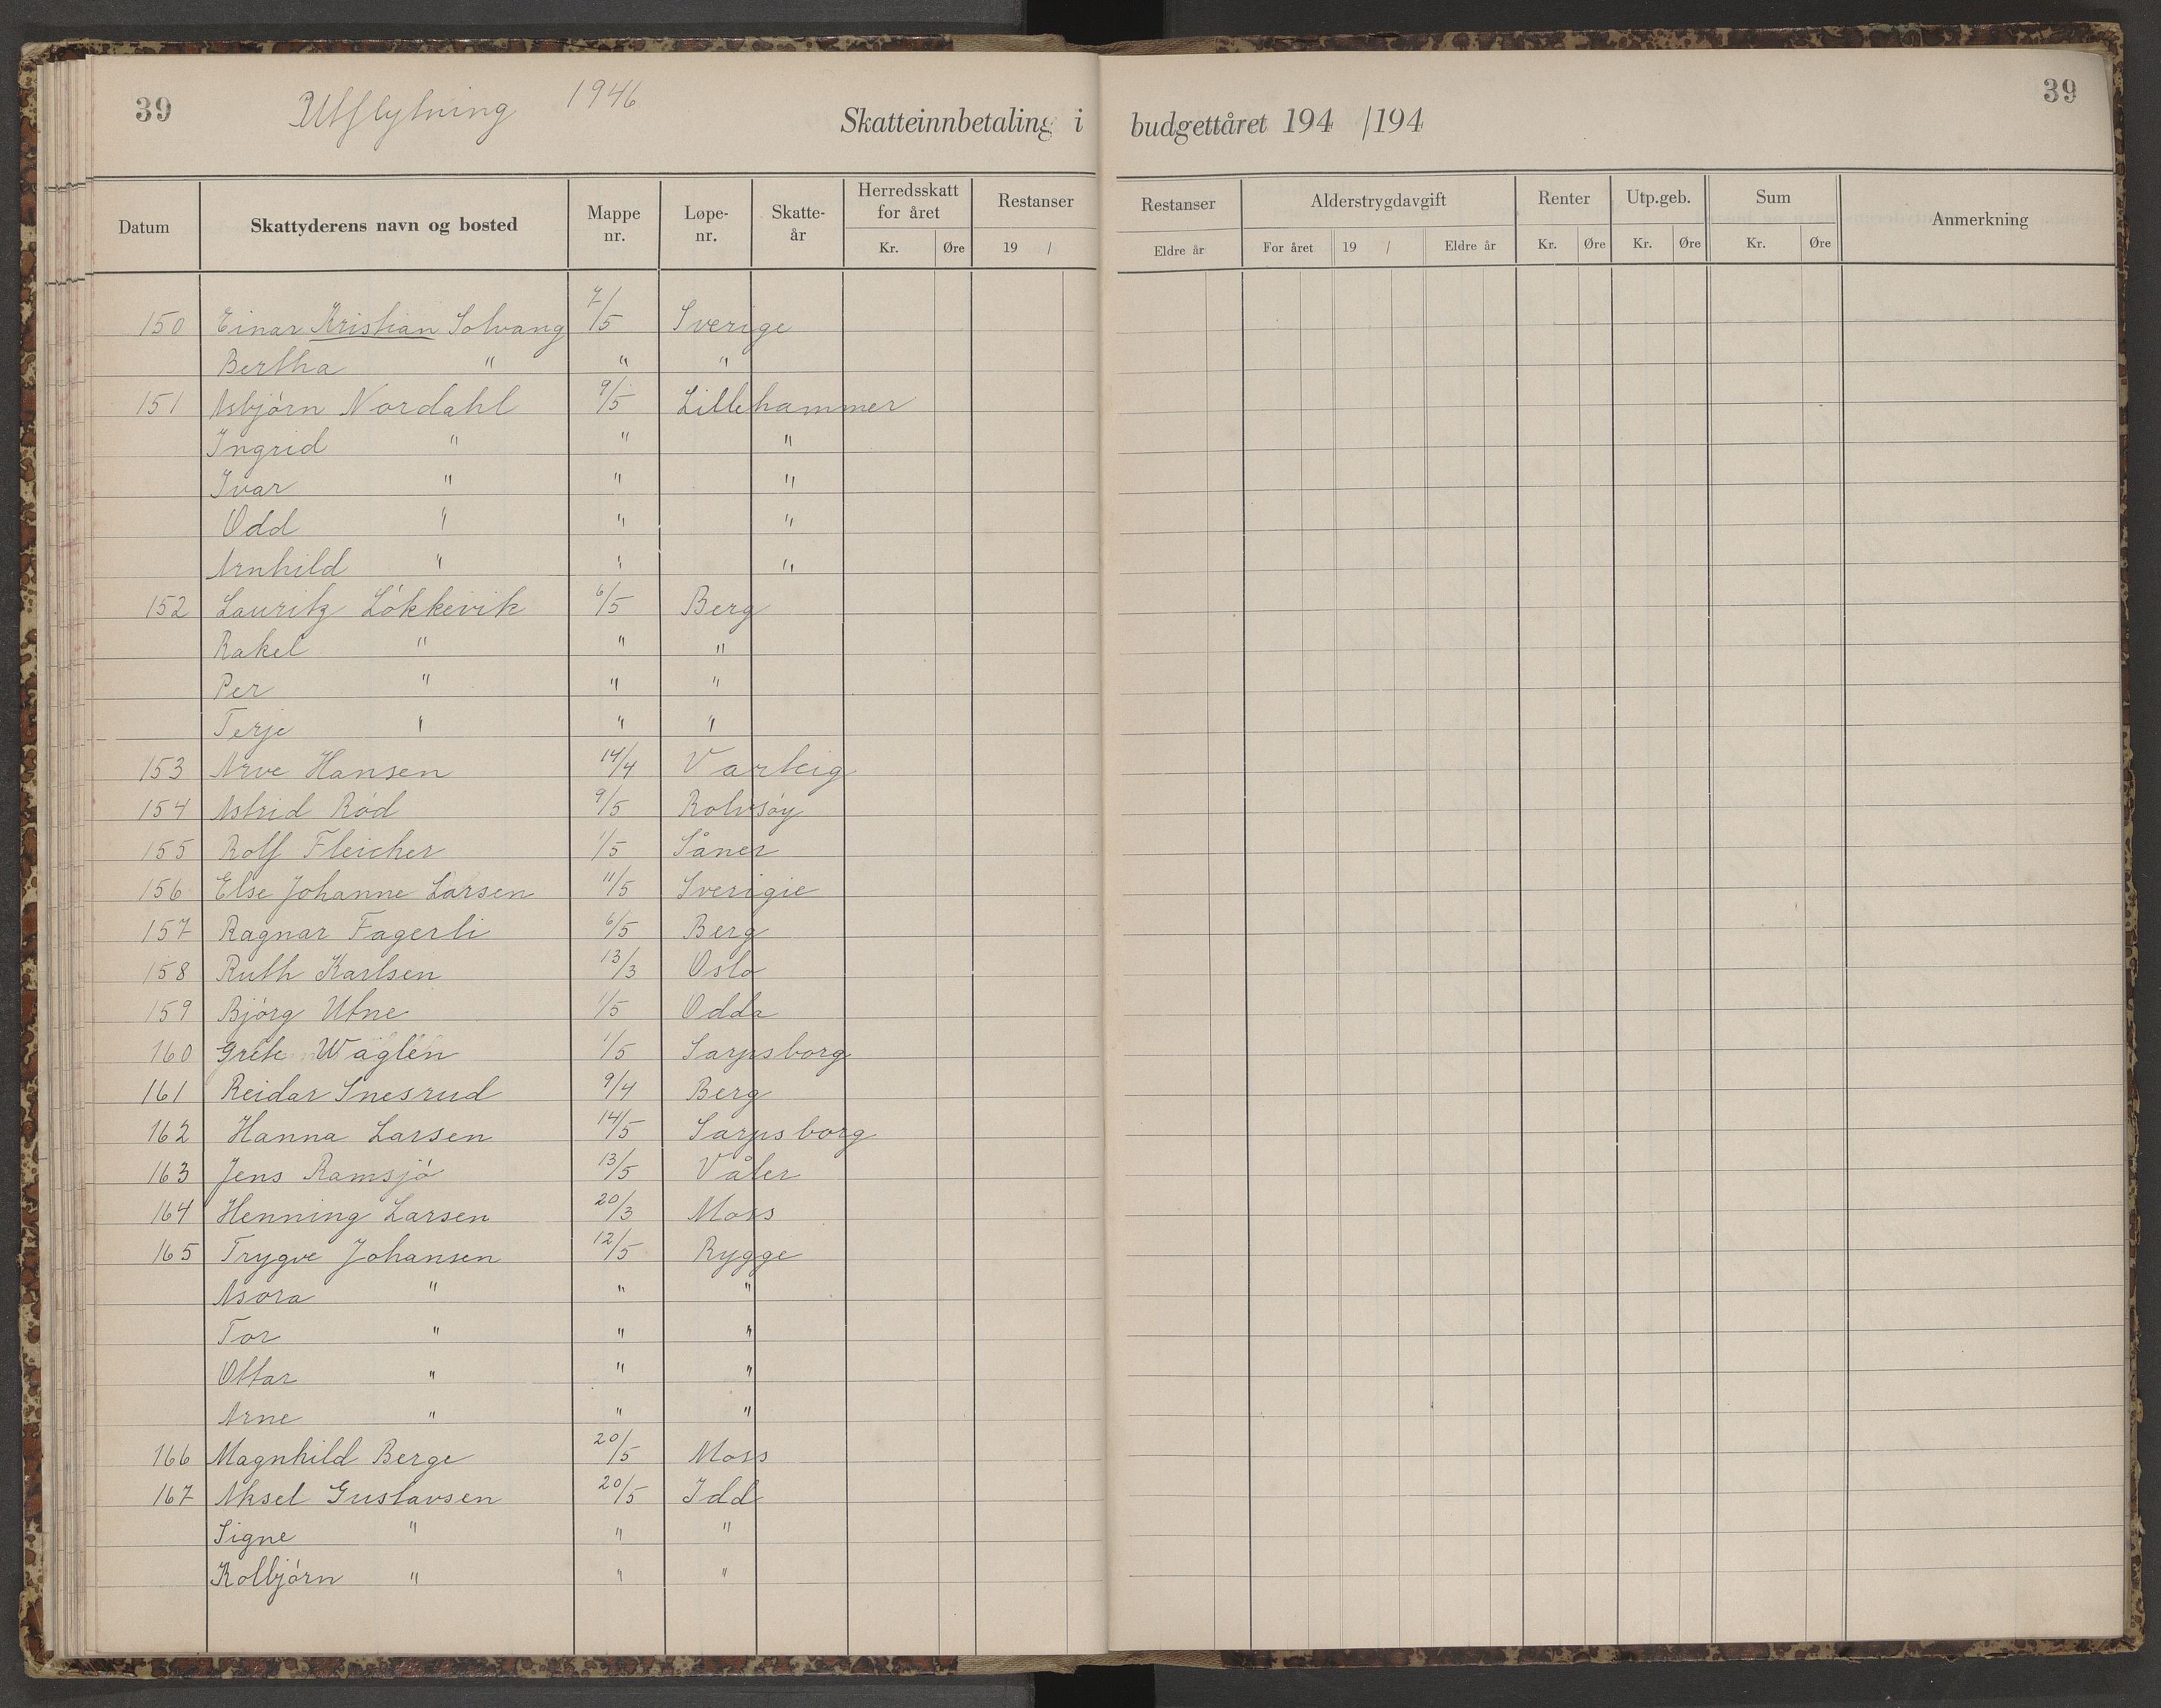 39 Utflytning 1946 39
Skatteinnbetaling i budgettåret 194 /194
Datum Skattyderens navn og bosted Mappe nr. Løpe-nr. Skatte-år Herredsskatt for året Restanser Restanser Alderstrygdavgift Renter Utp.geb. Sum Anmerkning
Kr. Øre 19 / Eldre år For året 19 / Eldre år Kr. Øre Kr. Øre Kr. Øre
150 Einar Kristian Solvang 7/5 Sverige
Bertha " " "
151 Asbjórn Nordahl 9/5 Lillehammer
Ingrid " " "
Ivar " " "
Odd " " "
Arnhild " " "
152 Lauritz Lókkevik 6/5 Berg
Rakel " " "
Per " " "
Terje " " "
153 Arve Hansen 14/4 Varteig
154 Astrid Ród 9/5 Rolvsóy
155 Rolf Fleicher 1/5 Såner
156 Else Johanne Larsen 11/5 Sverigie
157 Ragnar Fagerli 6/5 Berg
158 Ruth Karlsen 13/3 Oslo
159 Bjórg Utne 1/5 Odda
160 Grete Waglen 1/5 Sarpsborg
161 Reidar Snesrud 9/4 Berg
162 Hanna Larsen 14/5 Sarpsborg
163 Jens Ramsjó 13/5 Våler
164 Henning Larsen 20/3 Moss
165 Trygve Johansen 12/5 Rygge
Asora " " "
Tor " " "
Ottar " " "
Arne " " "
166 Magnhild Berge 20/5 Moss
167 Aksel Gustavsen 20/5 Idd
Signe " " "
Kolbjórn " " "